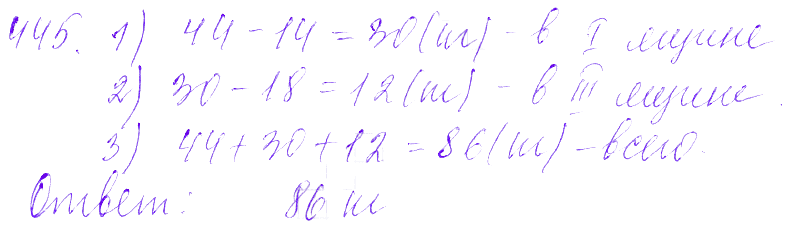 445. 1) 44 - 14 = 30 (т) - в I машине
2) 30 - 18 = 12 (т) - в III машине.
3) 44 + 30 + 12 = 86 (т) - всего.
Ответ: 86 т